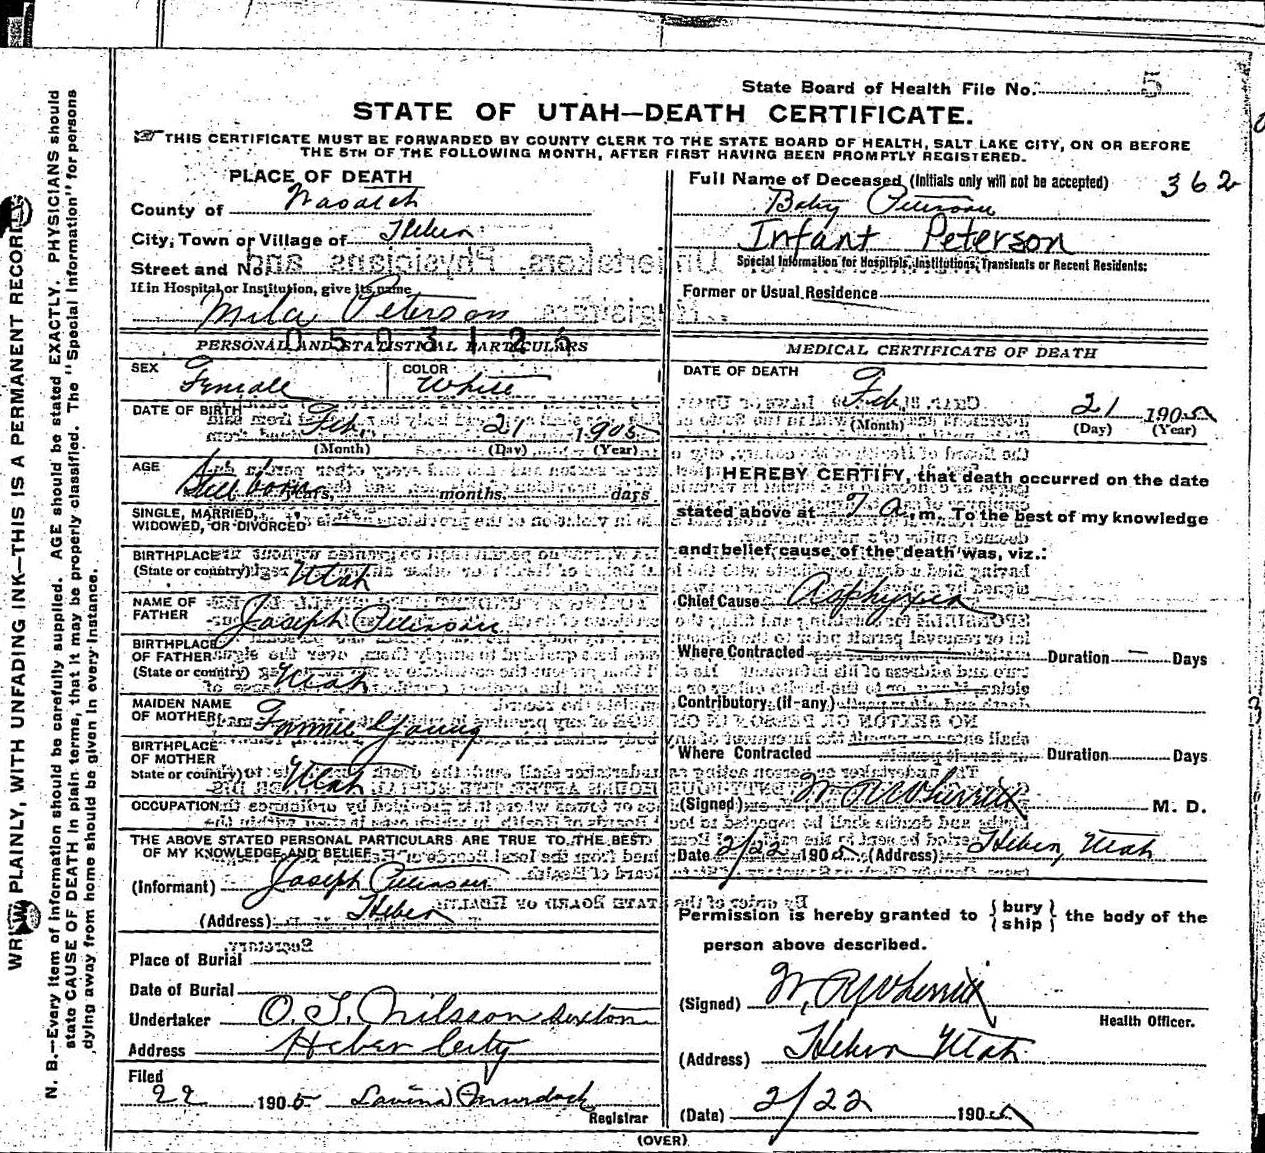 State Board of Health File No. 5
STATE OF UTAH—DEATH CERTIFICATE.
THIS CERTIFICATE MUST BE FORWARDED BY COUNTY CLERK TO THE STATE BOARD OF HEALTH, SALT LAKE CITY, ON OR BEFORE
THE 5TH OF THE FOLLOWING MONTH, AFTER FIRST HAVING BEEN PROMPTLY REGISTERED.
WRITE PLAINLY, WITH UNFADING INK—THIS IS A PERMANENT RECORD.
N. B.—Every item of information should be carefully supplied. AGE should be stated EXACTLY. PHYSICIANS should
state CAUSE OF DEATH in plain terms, that it may be properly classified. The "Special Information" for persons
dying away from home should be given in every instance.
PLACE OF DEATH
County of Wasatch
City, Town or Village of Heber
Street and No.
If in Hospital or Institution, give its name
Mila Peterson
0503126
PERSONAL AND STATISTICAL PARTICULARS
SEX Female COLOR White
DATE OF BIRTH Feb 21 1905
(Month) (Day) (Year)
AGE Still born years, months, days
SINGLE, MARRIED,
WIDOWED, OR DIVORCED
BIRTHPLACE
(State or country) Utah
NAME OF
FATHER Joseph Peterson
BIRTHPLACE
OF FATHER
(State or country) Utah
MAIDEN NAME
OF MOTHER Fannie Young
BIRTHPLACE
OF MOTHER
State or country) Utah
OCCUPATION
THE ABOVE STATED PERSONAL PARTICULARS ARE TRUE TO THE BEST
OF MY KNOWLEDGE AND BELIEF
(Informant) Joseph Peterson
(Address) Heber
Place of Burial
Date of Burial
Undertaker O. T. Nilsson Sexton
Address Heber City
Filed
22 1905 Lavina Murdock
Registrar
Full Name of Deceased (Initials only will not be accepted) 362
Baby Peterson
Infant Peterson
Special Information for Hospitals, Institutions, Transients or Recent Residents:
Former or Usual Residence
MEDICAL CERTIFICATE OF DEATH
DATE OF DEATH
Feb 21 1905
(Month) (Day) (Year)
I HEREBY CERTIFY, that death occurred on the date
stated above at 7 a. m. To the best of my knowledge
and belief cause of the death was, viz.:
Chief Cause Asphyxia
Where Contracted Duration — Days
Contributory (if any)
Where Contracted Duration Days
(Signed) W R Wherritt M. D.
Date 2/22 1905 (Address) Heber, Utah
Permission is hereby granted to { bury ship } the body of the
person above described.
(Signed) W. R. Wherritt
Health Officer.
(Address) Heber Utah
(Date) 2/22 1905
(OVER)